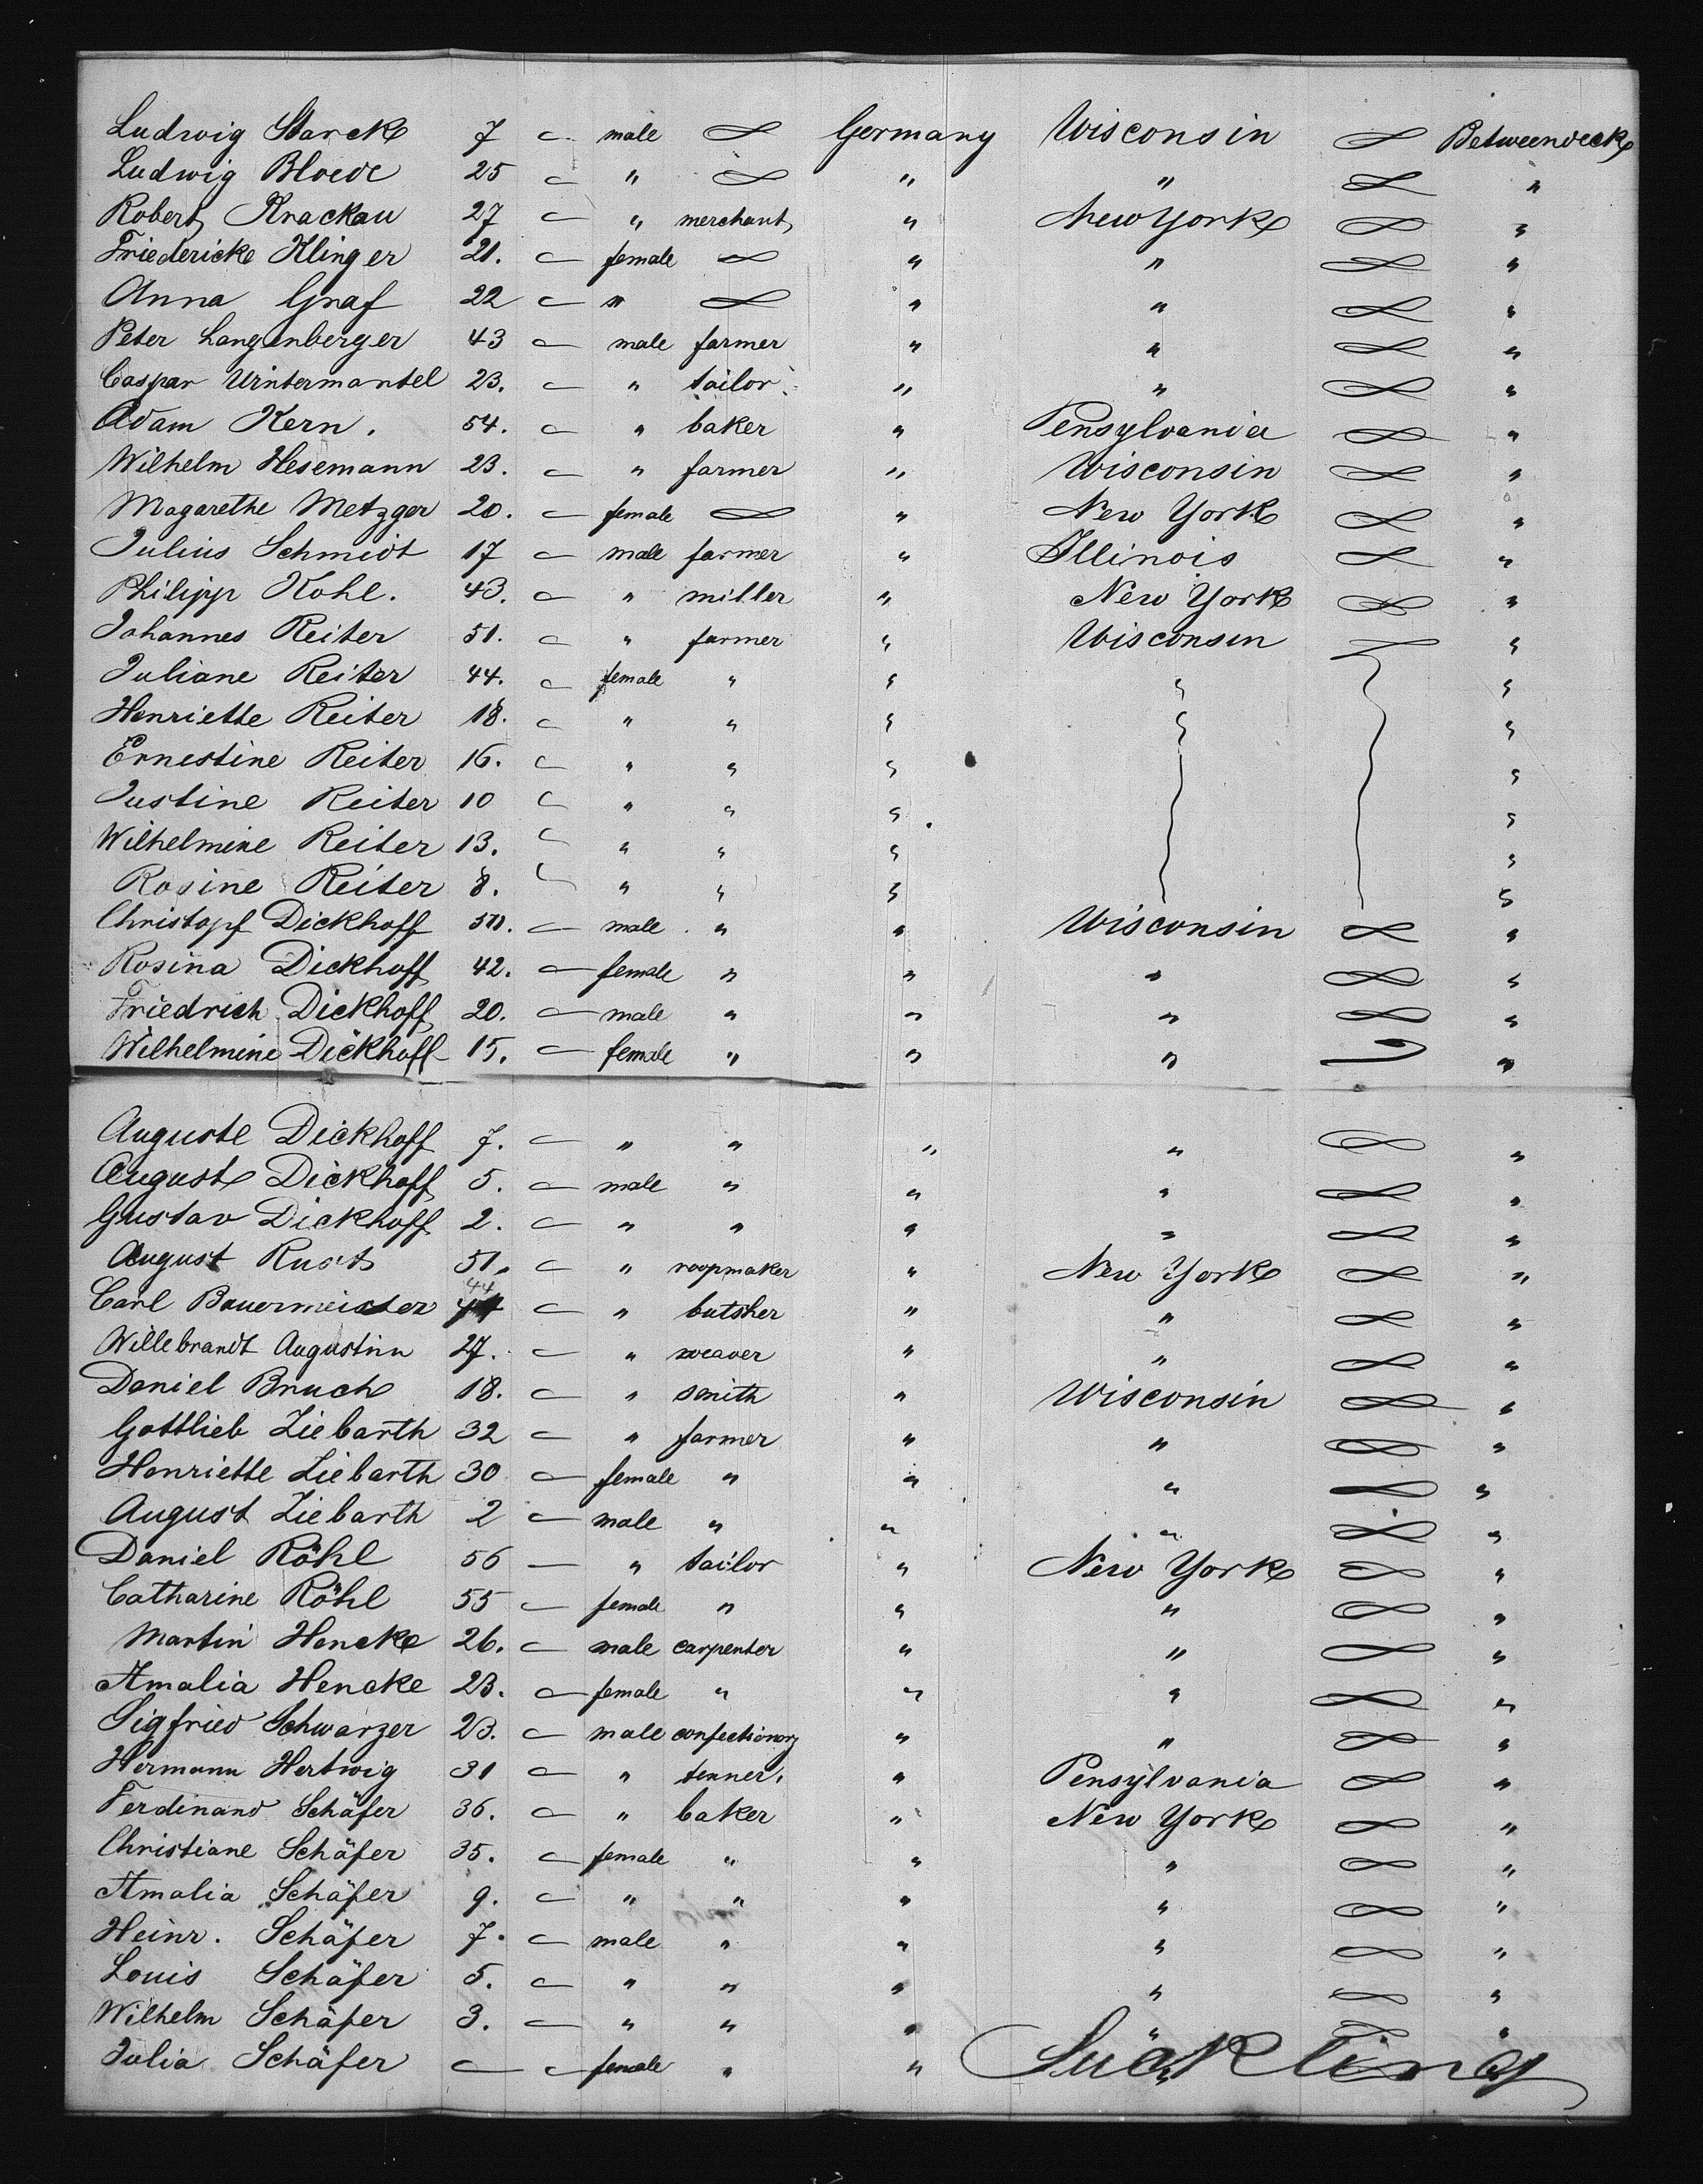 Ludwig Starck 7 male Germany Wisconsin Betweendeck
Ludwig Bloede 25 " " " "
Robert Krackau 27 " merchant " New York "
Friedericke Klinger 21. female " " "
Anna Graf 22 " " " "
Peter Langenberger 43 male farmer " " "
Caspar Wintermantel 23. " tailor " " "
Adam Kern. 54. " baker " Pensylvania "
Wilhelm Hesemann 23. " farmer " Wisconsin "
Magarethe Metzger 20. female " New York "
Julius Schmidt 17 male farmer " Illinois "
Philipp Kohl. 43. " miller " New York "
Johannes Reiter 51. " farmer " Wisconsin "
Juliane Reiter 44. female " " " "
Henriette Reiter 18. " " " " "
Ernestine Reiter 16. " " " "
Justine Reiter 10 " " " "
Wilhelmine Reiter 13. " " " "
Rosine Reiter 8. " " " "
Christopf Dickhoff male " " Wisconsin "
Rosina Dickhoff 42. female " " " "
Friedrich Dickhoff 20. male " " " "
Wilhelmine Dickhoff 15. female " " " "
Auguste Dickhoff 7. " " " " "
August Dickhoff 5. male " " " "
Gustav Dickhoff 2. " " " " "
August Rust 51. " roopmaker " New York "
Carl Bauermeister 44 " butsher " " "
Willebrandt Augustin 27. " weaver " " "
Daniel Bruch 18. " smith " Wisconsin "
Gottlieb Ziebarth 32 " farmer " " "
Henriette Ziebarth 30 female " " " "
August Ziebarth 2 male " " " "
Daniel Röhl 56 " tailor " New York "
Catharine Röhl 55 female " " " "
Martin Hencke 26. male carpenter " " "
Amalia Hencke 23. female " " " "
Sigfried Schwarzer 23. male confectionory " " "
Hermann Hertwig 31 " tenner. " Pensylvania "
Ferdinand Schäfer 36. " baker " New York "
Christiane Schäfer 35. female " " " "
Amalia Schäfer 9. " " " " "
Heinr. Schäfer 7. male " " " "
Louis Schäfer 5. " " " " "
Wilhelm Schäfer 3. " " " " "
Julia Schäfer female " " " Suckling